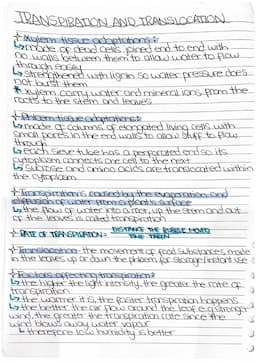 TRANSPIRATION AND TRANSLOCATION
Xylem tissue adaptations:
made of dead cells joined end to end with
no walls between them to allow water to flow
through easily
strengthened with lignin so water pressure does
not burst them
* xylem carry water and mineral ions from the
roots to the stem and leaves
Phloem tissue adaptations:
made of columns of elongated living cells with
small pores in the end walls to allow stuff to flow
through
each sieve tube has a perforated end so its
cytoplasm connects one cell to the next
sucrose and amino acids are translocated within
the cytoplasm
Transpiration is caused by the evaporation and
diffusion of water from a plant's surface
the flow of water into a root, up the stem and out
of the leaves is called transpiration
RATE OF TRANSPIRATION = DISTANCE THE BUBBLE MOVED
TIME TAKEN
Translocation: the movement of food substances made
in the leaves up or down the phloem, for storage/instant use
Factors affecting transpiration:
the higher the light intensity, the greater the rate of
transpiration
the warmer it is, the faster transpiration happens
the better the air flow around the leaf e.g stronger
wind, the greater transpiration rate since the
wind blows away water vapour
therefore low humidity is better